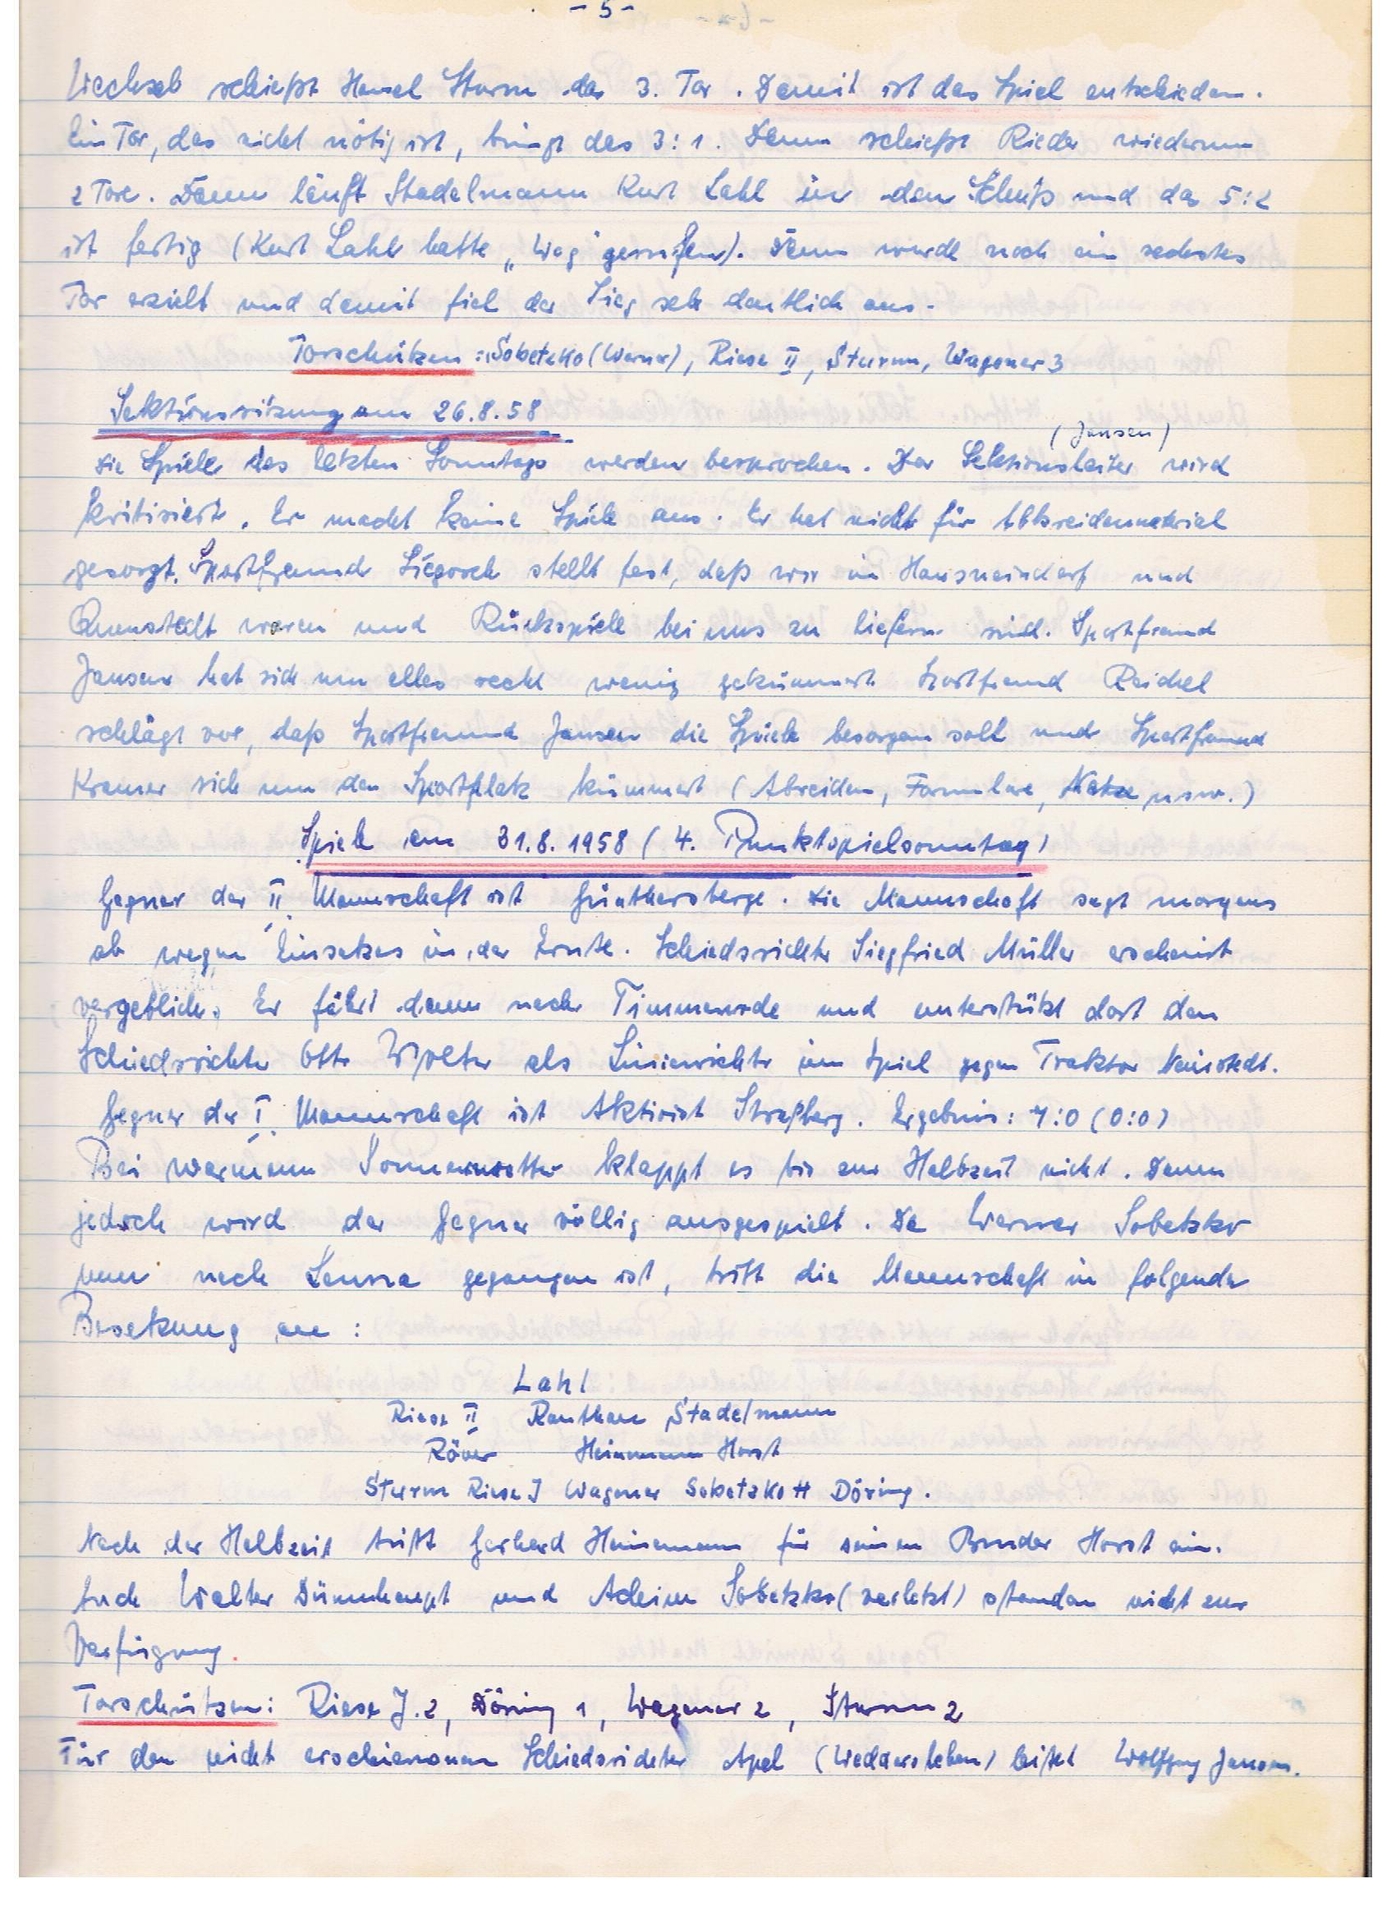 - 5 -
Wechsel schießt Hansel Sturm das 3. Tor. Damit ist das Spiel entschieden.
Ein Tor, das nicht nötig ist, bringt das 3:1. Dann schießt Rieder wiederum
2 Tore. Dann läuft Stadelmann Kurt Lahl in den Schuß und das 5:2
ist fertig (Kurt Lahl hatte „Weg" gerufen). Dann wurde noch ein sechstes
Tor erzielt und damit fiel der Sieg sehr deutlich aus.
Torschützen: Sobetzko (Werner), Riese II, Sturm, Wagener 3
Sektionssitzung am 26.8.58
(Jansen)
Die Spiele des letzten Sonntags werden besprochen. Der Sektionsleiter wird
kritisiert. Er macht keine Spiele aus. Er hat nicht für Abkreidematerial
gesorgt. Sportfreund stellt fest, daß wir in Hausneindorf und
Quenstedt waren und Rückspiele bei uns zu liefern sind. Sportfreund
Jansen hat sich um alles recht wenig gekümmert. Sportfreund Reichel
schlägt vor, daß Sportfreund Jansen die Spiele besorgen soll und Sportfreund
Kramer sich um den Sportplatz kümmert (Abkreiden, Formulare, Netze usw.)
Spiele am 31.8.1958 (4. Punktspielsonntag)
Gegner der II. Mannschaft ist Güntersberge. Die Mannschaft sagt morgens
ab wegen Einsatzes in der Ernte. Schiedsrichter Siegfried Müller erscheint
vergeblich. Er fährt dann nach Timmenrode und unterstützt dort den
Schiedsrichter Otto Wolter als Linienrichter im Spiel gegen Traktor Neinstedt.
Gegner der I. Mannschaft ist Aktivist Straßberg. Ergebnis: 7:0 (0:0)
Bei warmem Sommerwetter klappt es bis zur Halbzeit nicht. Dann
jedoch wird der Gegner völlig ausgespielt. Da Werner Sobetzko
nun nach Leuna gegangen ist, tritt die Mannschaft in folgender
Besetzung an:
Lahl
Riese II Stadelmann
Röver Heinemann Horst
Sturm Riese J Wagener Sobetzko H Döring.
Nach der Halbzeit tritt Gerhard Heinemann für seinen Bruder Horst ein.
Auch Walter Dünnhaupt und Achim Sobetzko (verletzt) standen nicht zur
Verfügung.
Torschützen: Riese J. 2, Döring 1, Wagener 2, Sturm 2
Für den nicht erschienenen Schiedsrichter Apel (Weddersleben) leitet Wolfgang Jansen.